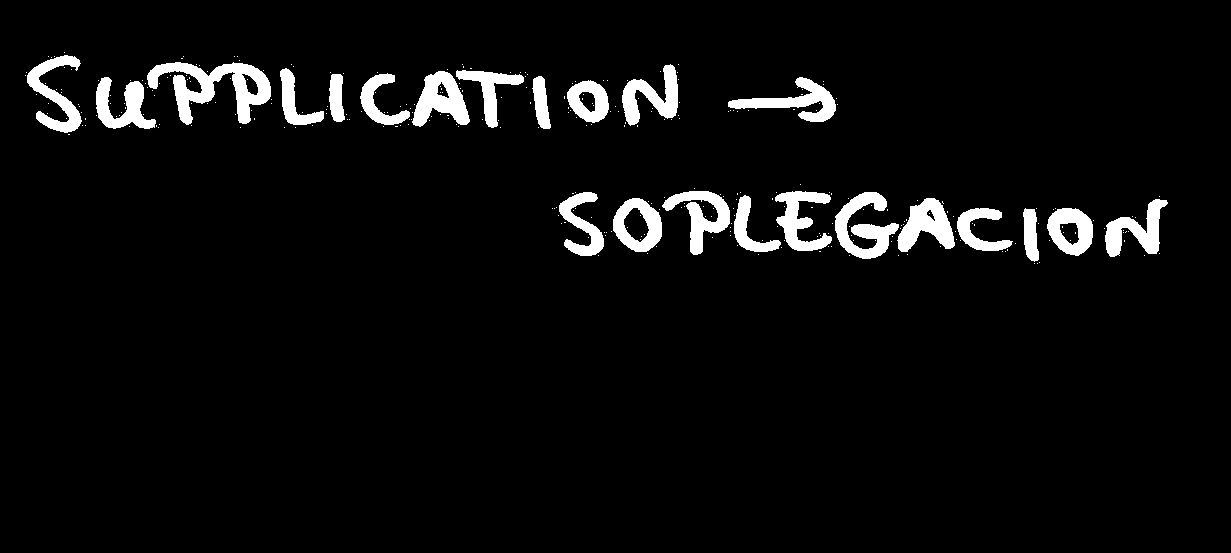 SUPPLICATION →
SOPLEGACION